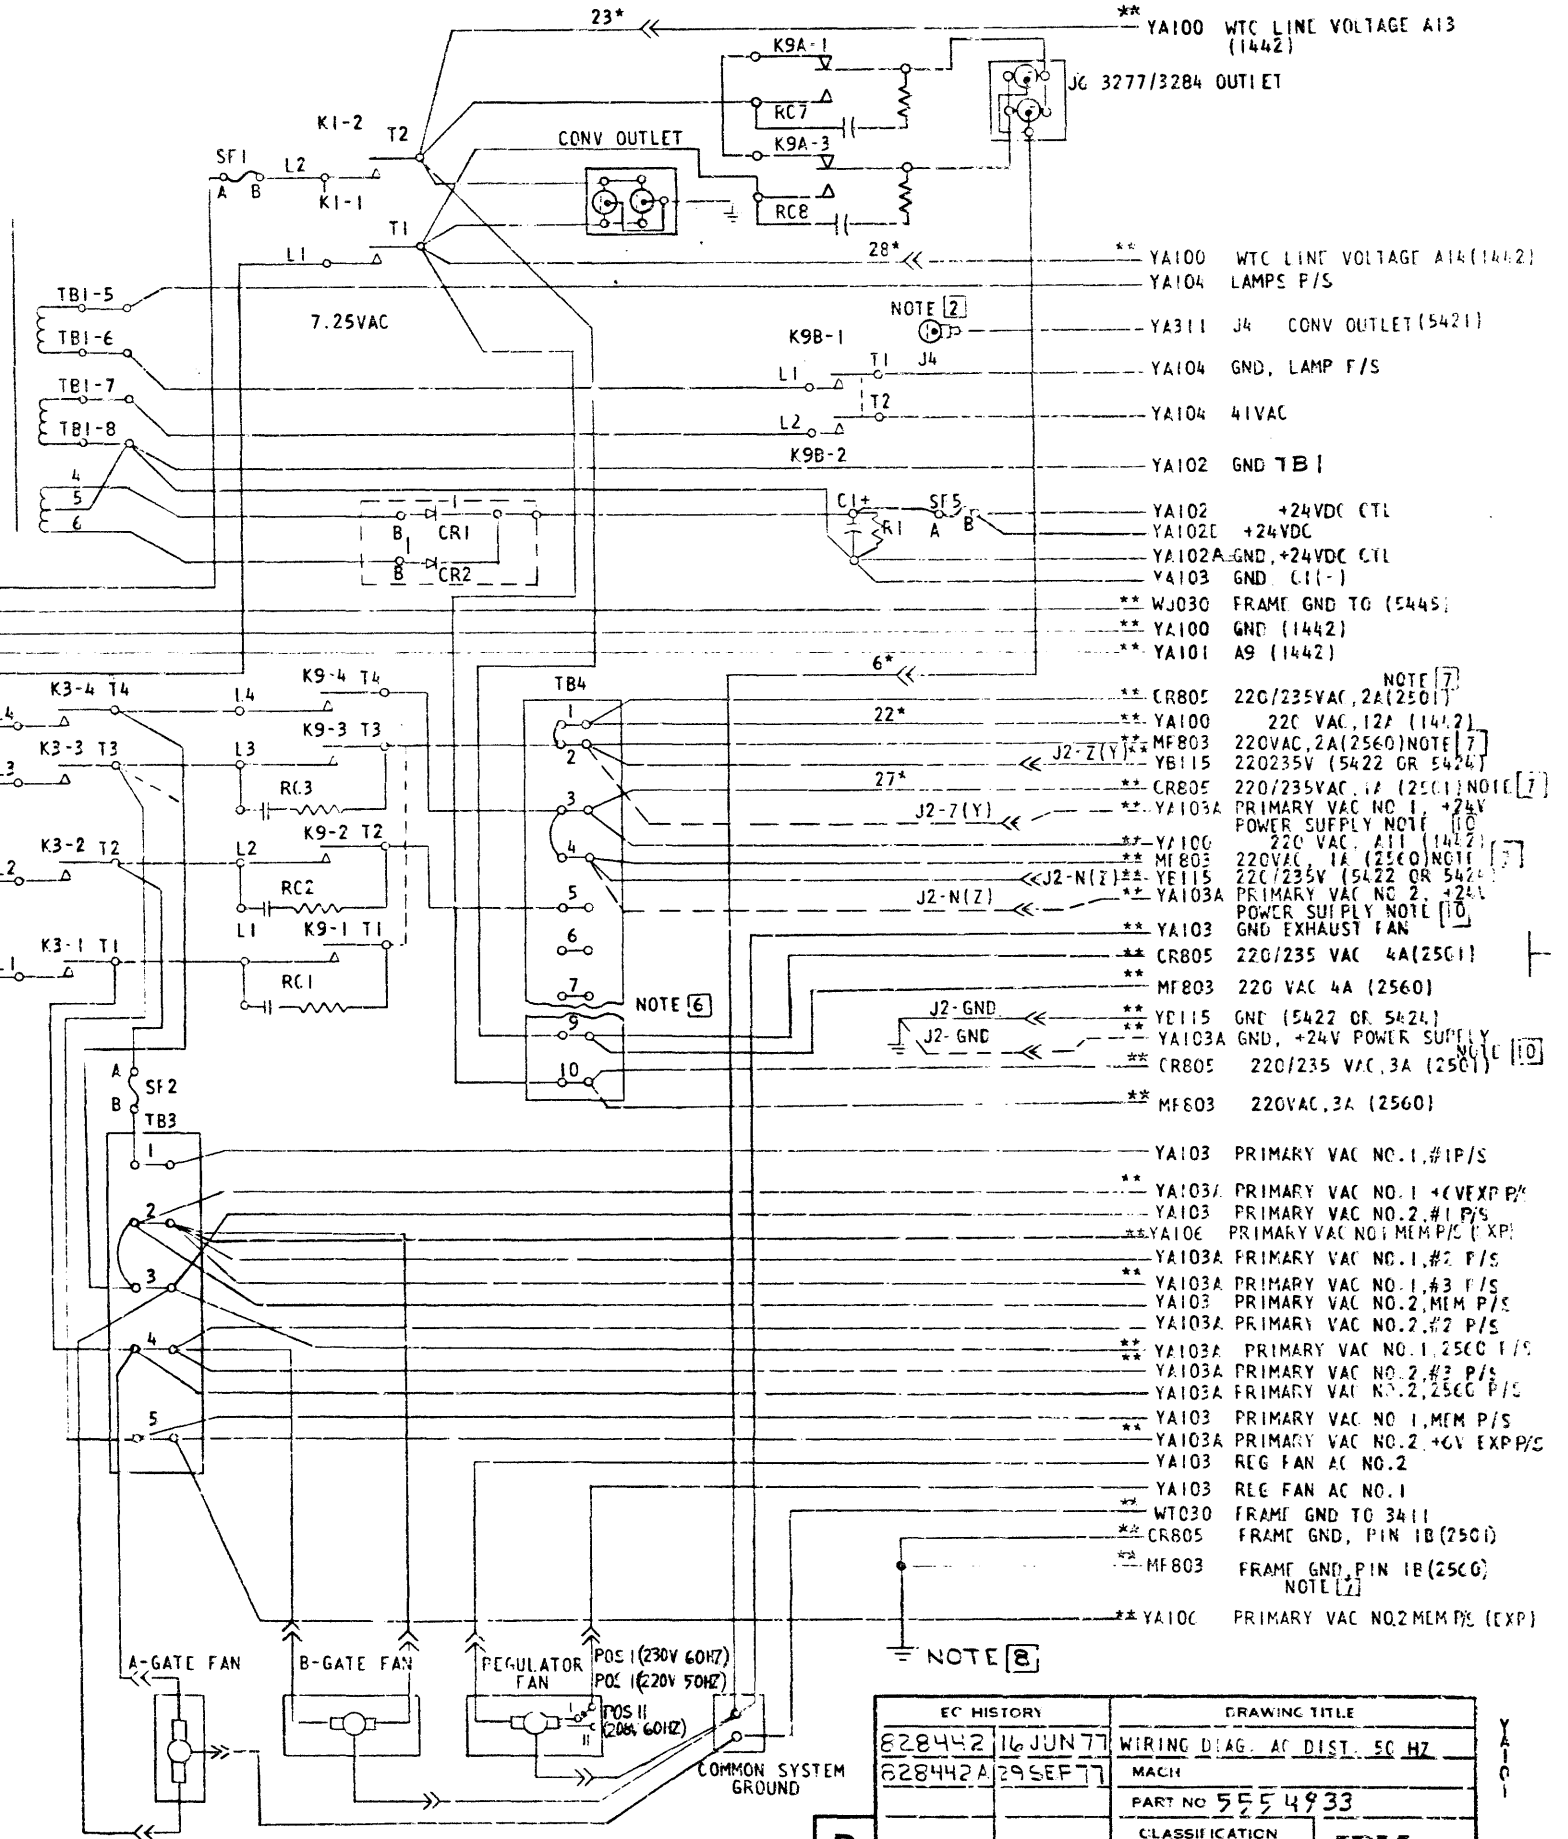 23*
** YA100 WTC LINE VOLTAGE A13
(1442)
K9A-1
J6 3277/3284 OUTLET
RC7
K1-2
T2
CONV OUTLET
K9A-3
SF1
A B
L2
K1-1
RC8
T1
L1
28*
** YA100 WTC LINE VOLTAGE A14(1442)
YA104 LAMPS P/S
TB1-5
7.25VAC
NOTE 2
J4
YA311 J4 CONV OUTLET(5421)
TB1-6
K9B-1
L1 T1
YA104 GND, LAMP P/S
TB1-7
L2 T2
YA104 41VAC
TB1-8
K9B-2
YA102 GND TB1
4
5
6
1
B CR1
1
B CR2
C1+
R1
SF5
A B
YA102 +24VDC CTL
YA102E +24VDC
YA102A GND, +24VDC CTL
YA103 GND C1(-)
** WJ030 FRAME GND TO (5445)
** YA100 GND (1442)
** YA101 A9 (1442)
6*
K3-4 T4
L4
K9-4 T4
TB4
NOTE 7
** CR805 220/235VAC,2A(2501)
22*
** YA100 220 VAC,12A (1442)
K3-3 T3
L3
K9-3 T3
1
2
** MF803 220VAC,2A(2560)NOTE 7
J2-Z(Y)** YB115 220235V (5422 OR 5424)
RC3
27*
** CR805 220/235VAC,1A (2501)NOTE 7
3
J2-7(Y)
** YA103A PRIMARY VAC NO 1, +24V
POWER SUPPLY NOTE 10
K3-2 T2
L2
K9-2 T2
4
** YA100 220 VAC, A11 (1442)
** MF803 220VAC, 1A (2560)NOTE 7
J2-N(Z)** YB115 220/235V (5422 OR 5424)
RC2
5
J2-N(Z)
** YA103A PRIMARY VAC NO 2, +24V
POWER SUPPLY NOTE 10
K3-1 T1
L1
K9-1 T1
6
** YA103 GND EXHAUST FAN
** CR805 220/235 VAC 4A(2501)
RC1
7
NOTE 6
** MF803 220 VAC 4A (2560)
9
J2-GND
** YB115 GND (5422 OR 5424)
J2-GND
** YA103A GND, +24V POWER SUPPLY
NOTE 10
10
** CR805 220/235 VAC,3A (2501)
A
SF2
B
** MF803 220VAC,3A (2560)
TB3
1
YA103 PRIMARY VAC NO.1,#1P/S
** YA103A PRIMARY VAC NO.1 +6VEXP P/S
2
YA103 PRIMARY VAC NO.2,#1 P/S
**YA106 PRIMARY VAC NO1 MEM P/S (EXP)
YA103A PRIMARY VAC NO.1,#2 P/S
3
** YA103A PRIMARY VAC NO.1,#3 P/S
YA103 PRIMARY VAC NO.2,MEM P/S
YA103A PRIMARY VAC NO.2,#2 P/S
4
** YA103A PRIMARY VAC NO.1,2560 P/S
** YA103A PRIMARY VAC NO.2,#3 P/S
YA103A PRIMARY VAC NO.2,2560 P/S
5
YA103 PRIMARY VAC NO 1,MEM P/S
** YA103A PRIMARY VAC NO.2,+6V EXP P/S
YA103 REG FAN AC NO.2
YA103 REG FAN AC NO.1
** WT030 FRAME GND TO 3411
** CR805 FRAME GND, PIN 1B(2501)
** MF803 FRAME GND,PIN 1B(2560)
NOTE 7
** YA106 PRIMARY VAC NO.2 MEM P/S (EXP)
NOTE 8
A-GATE FAN
B-GATE FAN
REGULATOR
FAN
POS I(230V 60HZ)
POS I(220V 50HZ)
I
POS II
(208V 60HZ)
II
COMMON SYSTEM
GROUND
EC HISTORY
DRAWING TITLE
828442 16 JUN 77
WIRING DIAG. AC DIST. 50 HZ
828442A 29 SEP 77
MACH
PART NO 5554933
CLASSIFICATION
YA101